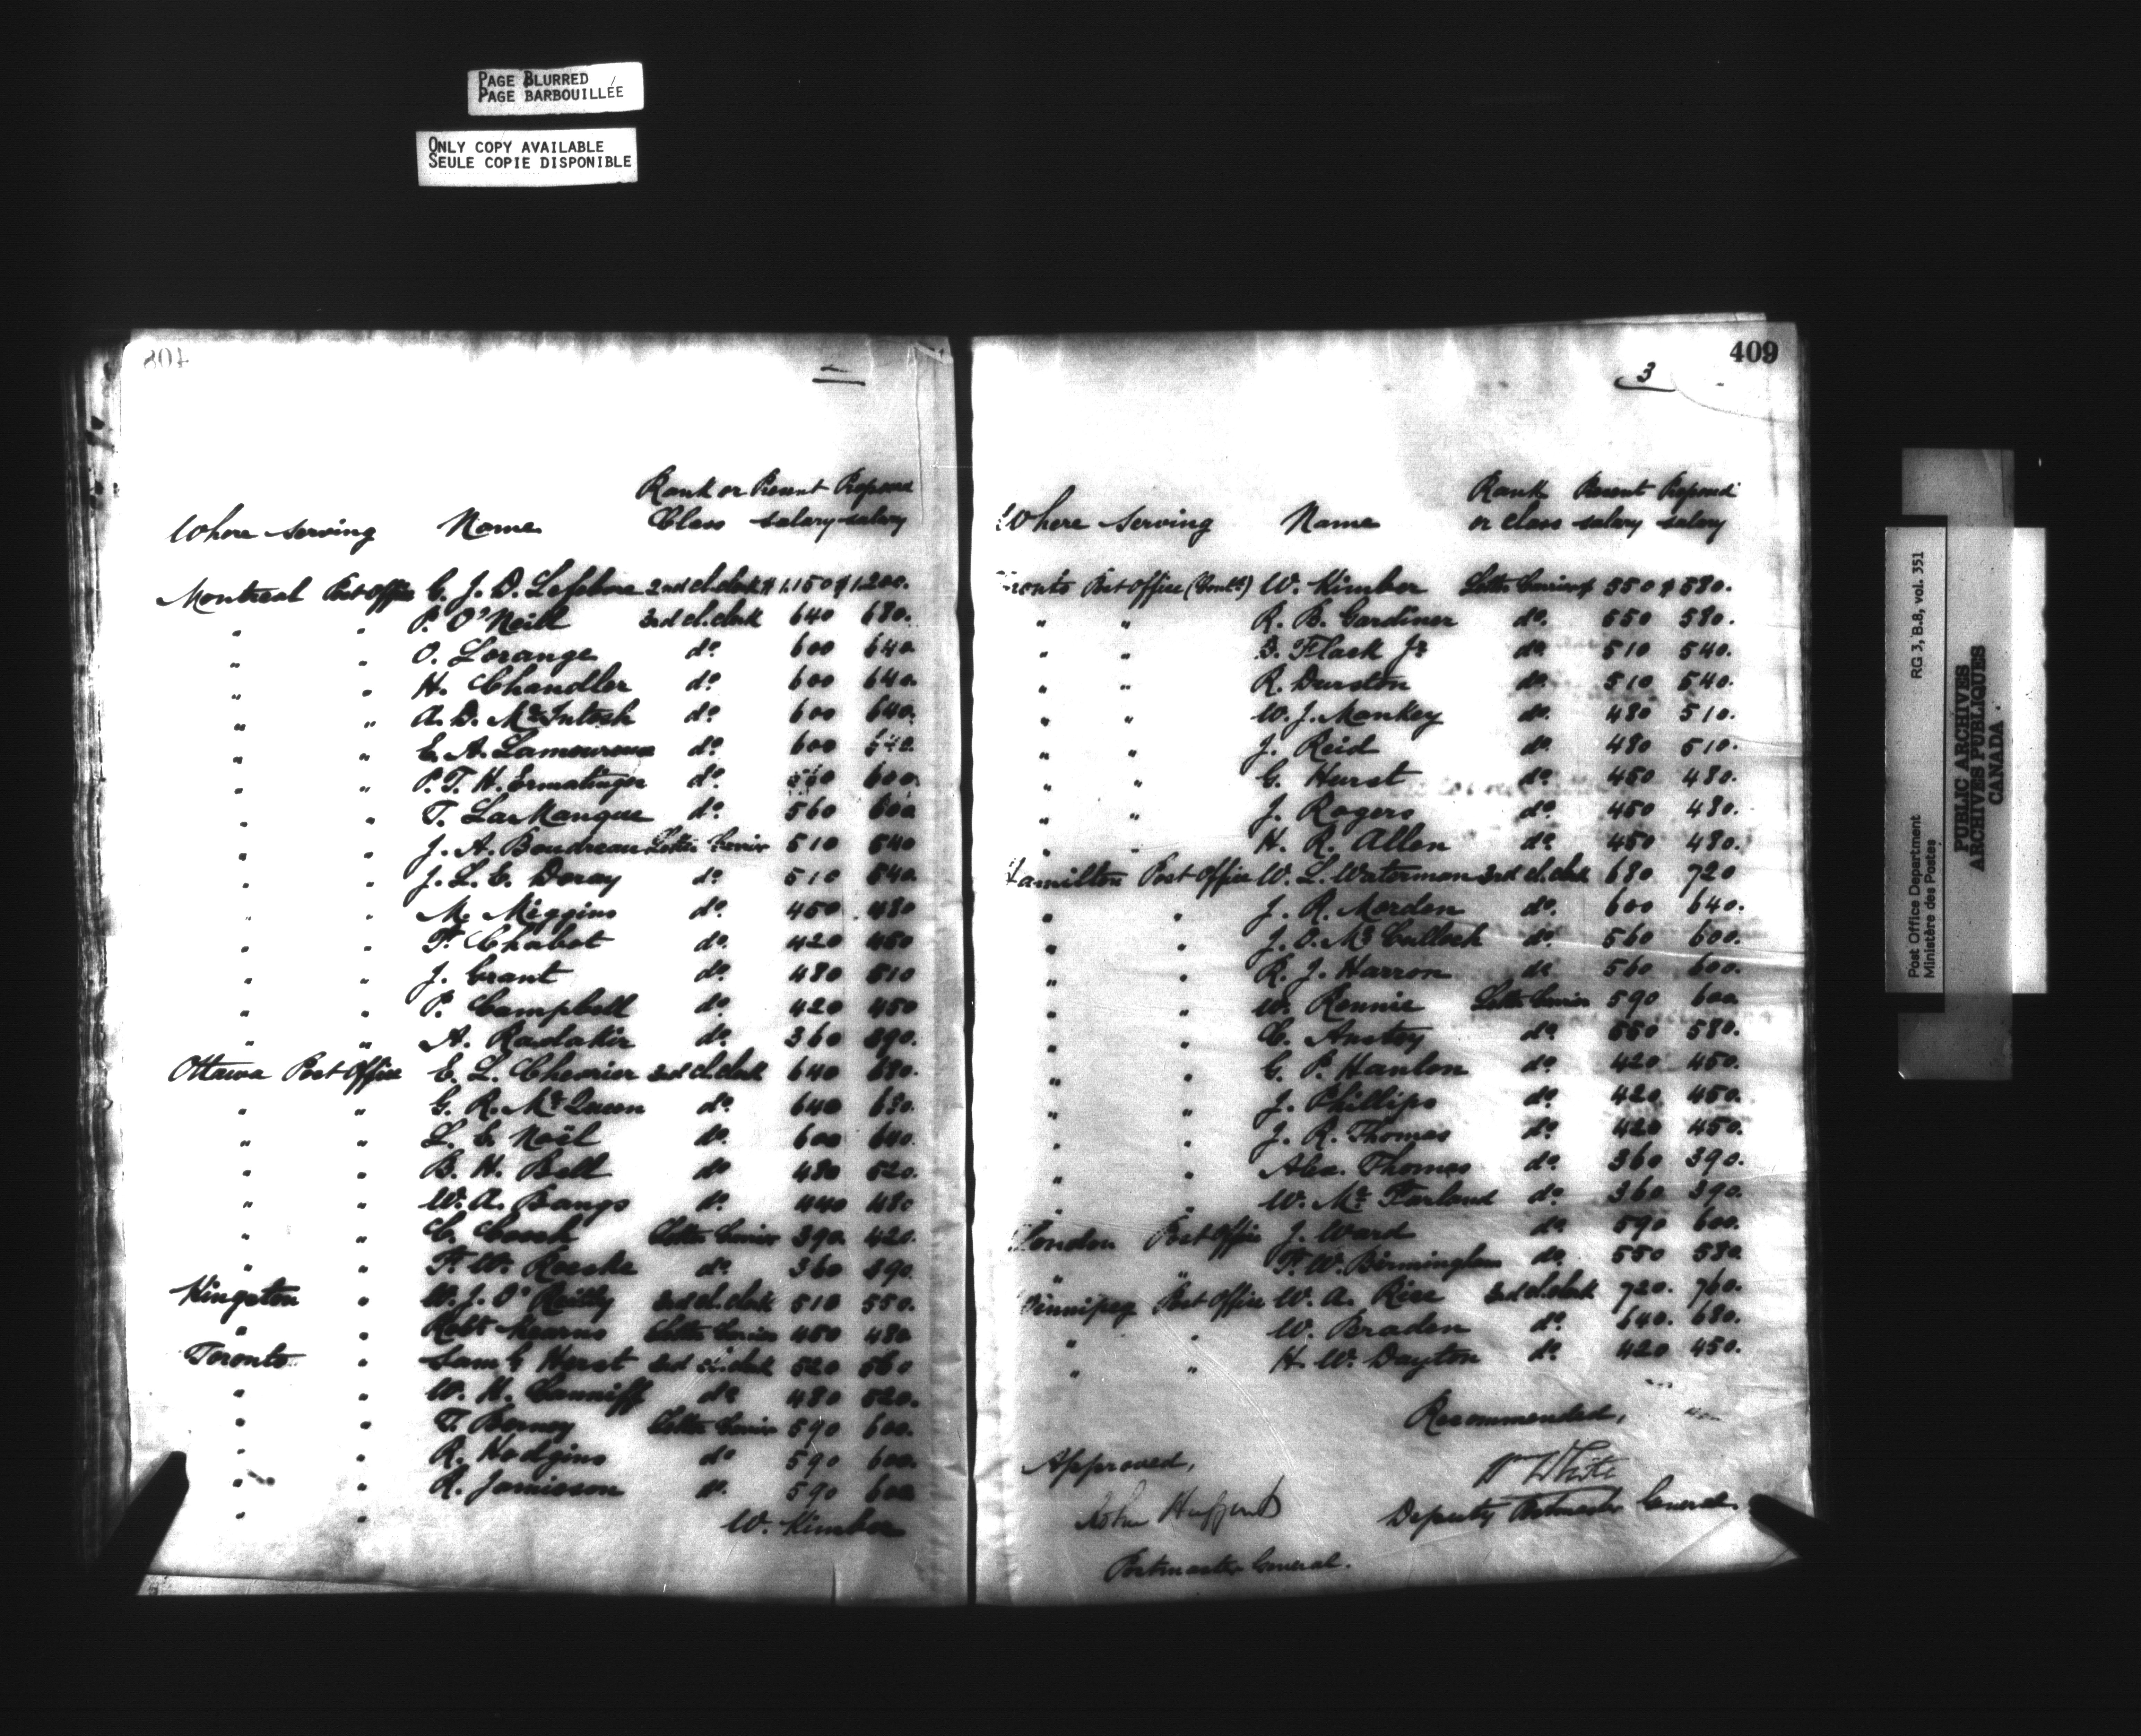 PAGE BLURRED
PAGE BARBOUILLÉE
ONLY COPY AVAILABLE
SEULE COPIE DISPONIBLE
408
Rank or Present Proposed
Where serving Name Class salary salary
Montreal Post Office C. J. D. Lefebvre 2nd cl. clerk $1,150 $1,200.
" " P. O'Neill 3rd cl. clerk 640 680.
" " O. Lorange do 600 640
" " H. Chandler do 600 640.
" " A. D. McIntosh do 600 640.
" " E. A. Lamoureux do 600 640
" " P. T. H. Ermatinger do 560 600.
" " T. LaManque do 560 600
" " J. A. Boudreau Letter Carrier 510 540
" " J. L. E. Deray do 510 540
" " M. Meggins do 450 480
" " F. Chabot do 420 450
" " J. Grant do 480 510
" " P. Campbell do 420 450
" " A. do 360 390.
Ottawa Post Office E. L. Chevrier 3rd cl. clerk 640 680.
" " G. R. McQueen do 640 680.
" " L. E. Noël do 600 640.
" " B. H. Bell do 480 520.
" " W. A. Bangs do 440 480
" " C. Letter Carrier 390 420.
" " F. W. Roeske do 360 390
Kingston " W. J. O'Reilly 3rd cl. clerk 510 550.
" " Robt Kearns Letter Carrier 450 480
Toronto " Saml Herst 3rd cl. clerk 520 560
" " W. H. Canniff do 480 520.
" " T. Letter Carrier 590 600.
" " R. Hodgins do 590 600.
" " R. Jamieson do 590 600
" " W. Kimber
409
3
Rank Present Proposed
Where serving Name or class salary salary
Toronto Post Office (Contd) W. Kimber Letter Carrier $ 550 $ 580.
" " R. B. Gardiner do 550 580.
" " Flack Jr do 510 540.
" " R. Durston do 510 540.
" " W. J. Mankey do 480 510.
" " J. Reid do 480 510.
" " G. Hurst do 450 480.
" " J. Rogers do 450 480.
" " H. R. Allen do 450 480.
Hamilton Post Office W. L. Waterman 3rd cl. clerk 680 720
" " J. R. Morden do 600 640.
" " J. O. McCulloch do 560 600.
" " R. J. Harron do 560 600.
" " W. Rennie Letter Carrier 590 600
" " C. Anstey do 550 580.
" " G. P. Hanlon do 420 450.
" " J. Phillips do 420 450.
" " J. R. Thomas do 420 450.
" " Alex. Thomas do 360 390.
" " W. McFarland do 360 390.
London Post Office J. Ward do 590 600.
" " F. W. Birmingham do 550 580
Winnipeg Post Office W. A. Rice 3rd cl. clerk 720. 760.
" " W. Braden do 640. 680.
" " H. W. Dayton do 420 450.
Recommended,
Approved,
Wm White
Deputy Postmaster General
John Haggart
Postmaster General.
Post Office Department RG 3, B.8, vol. 351
Ministère des Postes
PUBLIC ARCHIVES
ARCHIVES PUBLIQUES
CANADA